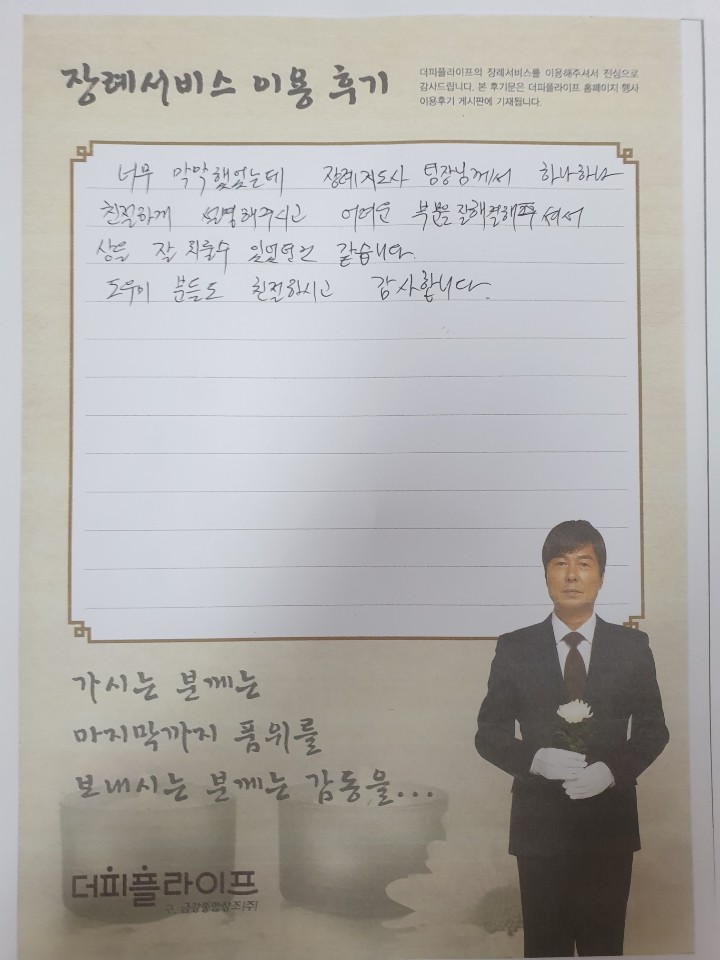 장례서비스 이용 후기
더피플라이프의 장례서비스를 이용해주셔서 진심으로
감사드립니다. 본 후기문은 더피플라이프 홈페이지 행사
이용후기 게시판에 기재됩니다.
너무 막막했었는데 장례지도사 팀장님께서 하나하나
친절하게 설명해주시고 어려운 부분을 잘해결해주셔서
상을 잘 치를수 있었던건 같습니다.
도우미 분들도 친절하시고 감사합니다.
가시는 분께는
마지막까지 품위를
보내시는 분께는 감동을...
더피플라이프
구. 금강종합상조(주)